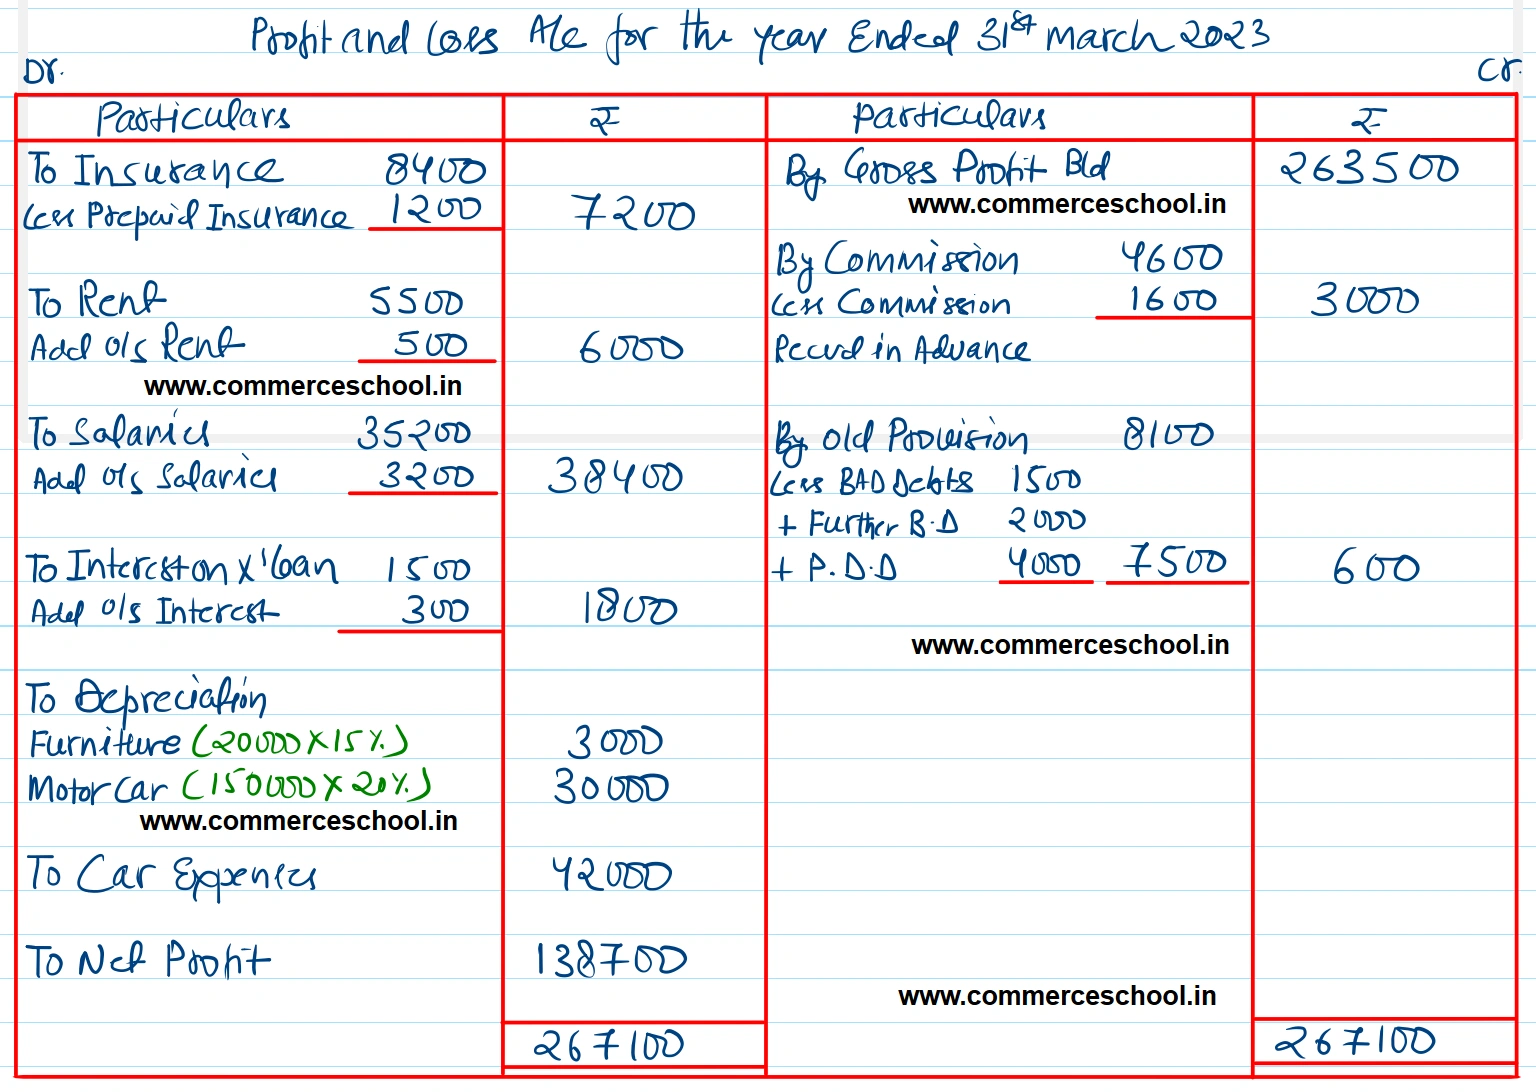 Profit and Loss A/c for the year Ended 31st March 2023
Dr. Cr.
Particulars ₹ Particulars ₹
To Insurance 8400
Less Prepaid Insurance 1200 7200
To Rent 5500
Add o/s Rent 500 6000
www.commerceschool.in
To Salaries 35200
Add o/s Salaries 3200 38400
To Interest on X's loan 1500
Add o/s Interest 300 1800
To Depreciation
Furniture (20000 X 15%) 3000
Motor Car (150000 X 20%) 30000
www.commerceschool.in
To Car Expenses 42000
To Net Profit 138700
267100
By Gross Profit B/d 263500
www.commerceschool.in
By Commission 4600
Less Commission 1600 3000
Recvd in Advance
By Old Provision 8100
Less BAD Debts 1500
+ Further B.D 2000
+ P.D.D 4000 7500 600
www.commerceschool.in
www.commerceschool.in
267100